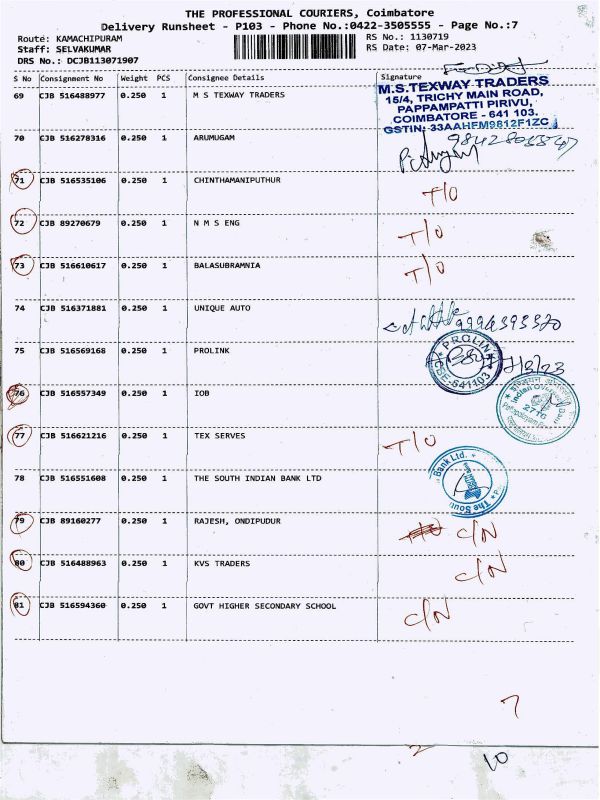 THE PROFESSIONAL COURIERS, Coimbatore
Delivery Runsheet - P103 - Phone No.:0422-3505555 - Page No.:7
Route: KAMACHIPURAM RS No.: 1130719
Staff: SELVAKUMAR RS Date: 07-Mar-2023
DRS No.: DCJB113071907
S No Consignment No Weight PCS Consignee Details Signature
69 CJB 516488977 0.250 1 M S TEXWAY TRADERS
M.S.TEXWAY TRADERS
15/4, TRICHY MAIN ROAD,
PAPPAMPATTI PIRIVU,
COIMBATORE - 641 103.
GSTIN: 33AAHFM9812F1ZC
70 CJB 516278316 0.250 1 ARUMUGAM
71 CJB 516535106 0.250 1 CHINTHAMANIPUTHUR T/O
72 CJB 89270679 0.250 1 N M S ENG T/O
73 CJB 516610617 0.250 1 BALASUBRAMNIA T/O
74 CJB 516371881 0.250 1 UNIQUE AUTO 9994393320
75 CJB 516569168 0.250 1 PROLINK
PROLINK
CBE-641103
76 CJB 516557349 0.250 1 IOB
Indian Overseas Bank
2770
77 CJB 516621216 0.250 1 TEX SERVES T/O
78 CJB 516551608 0.250 1 THE SOUTH INDIAN BANK LTD
Bank Ltd.
The Sout
79 CJB 89160277 0.250 1 RAJESH, ONDIPUDUR C/N
80 CJB 516488963 0.250 1 KVS TRADERS C/N
81 CJB 516594360 0.250 1 GOVT HIGHER SECONDARY SCHOOL C/N
7
2
10